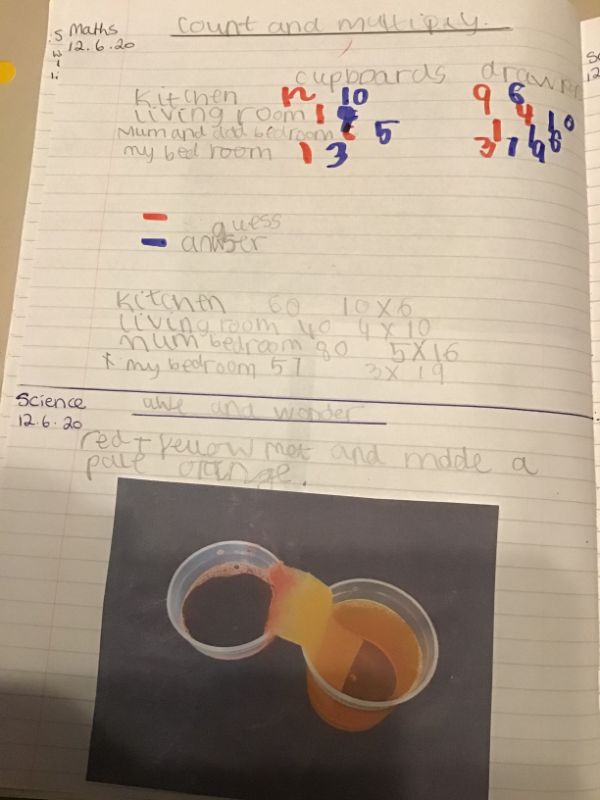 Maths
12.6.20
count and multiply.
cupboards draw
Kitchen 12 10 9 6
living room 1 4 10
Mum and dad bedroom 5 1 16
my bed room 1 3 3 19
guess
answer
Kitchen 60 10x6
living room 40 4x10
mum bedroom 80 5x16
my bedroom 57 3x19
Science
12.6.20
awe and wonder
red + yellow met and made a
pale orange.